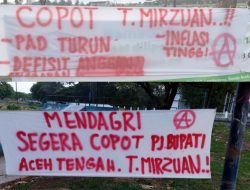 COPOT T. MIRZUAN..!!
- PAD TURUN
- INFLASI TINGGI
- DEFISIT
MENDAGRI
SEGERA COPOT PJ BUPATI
ACEH TENGAH. T. MIRZUAN.!